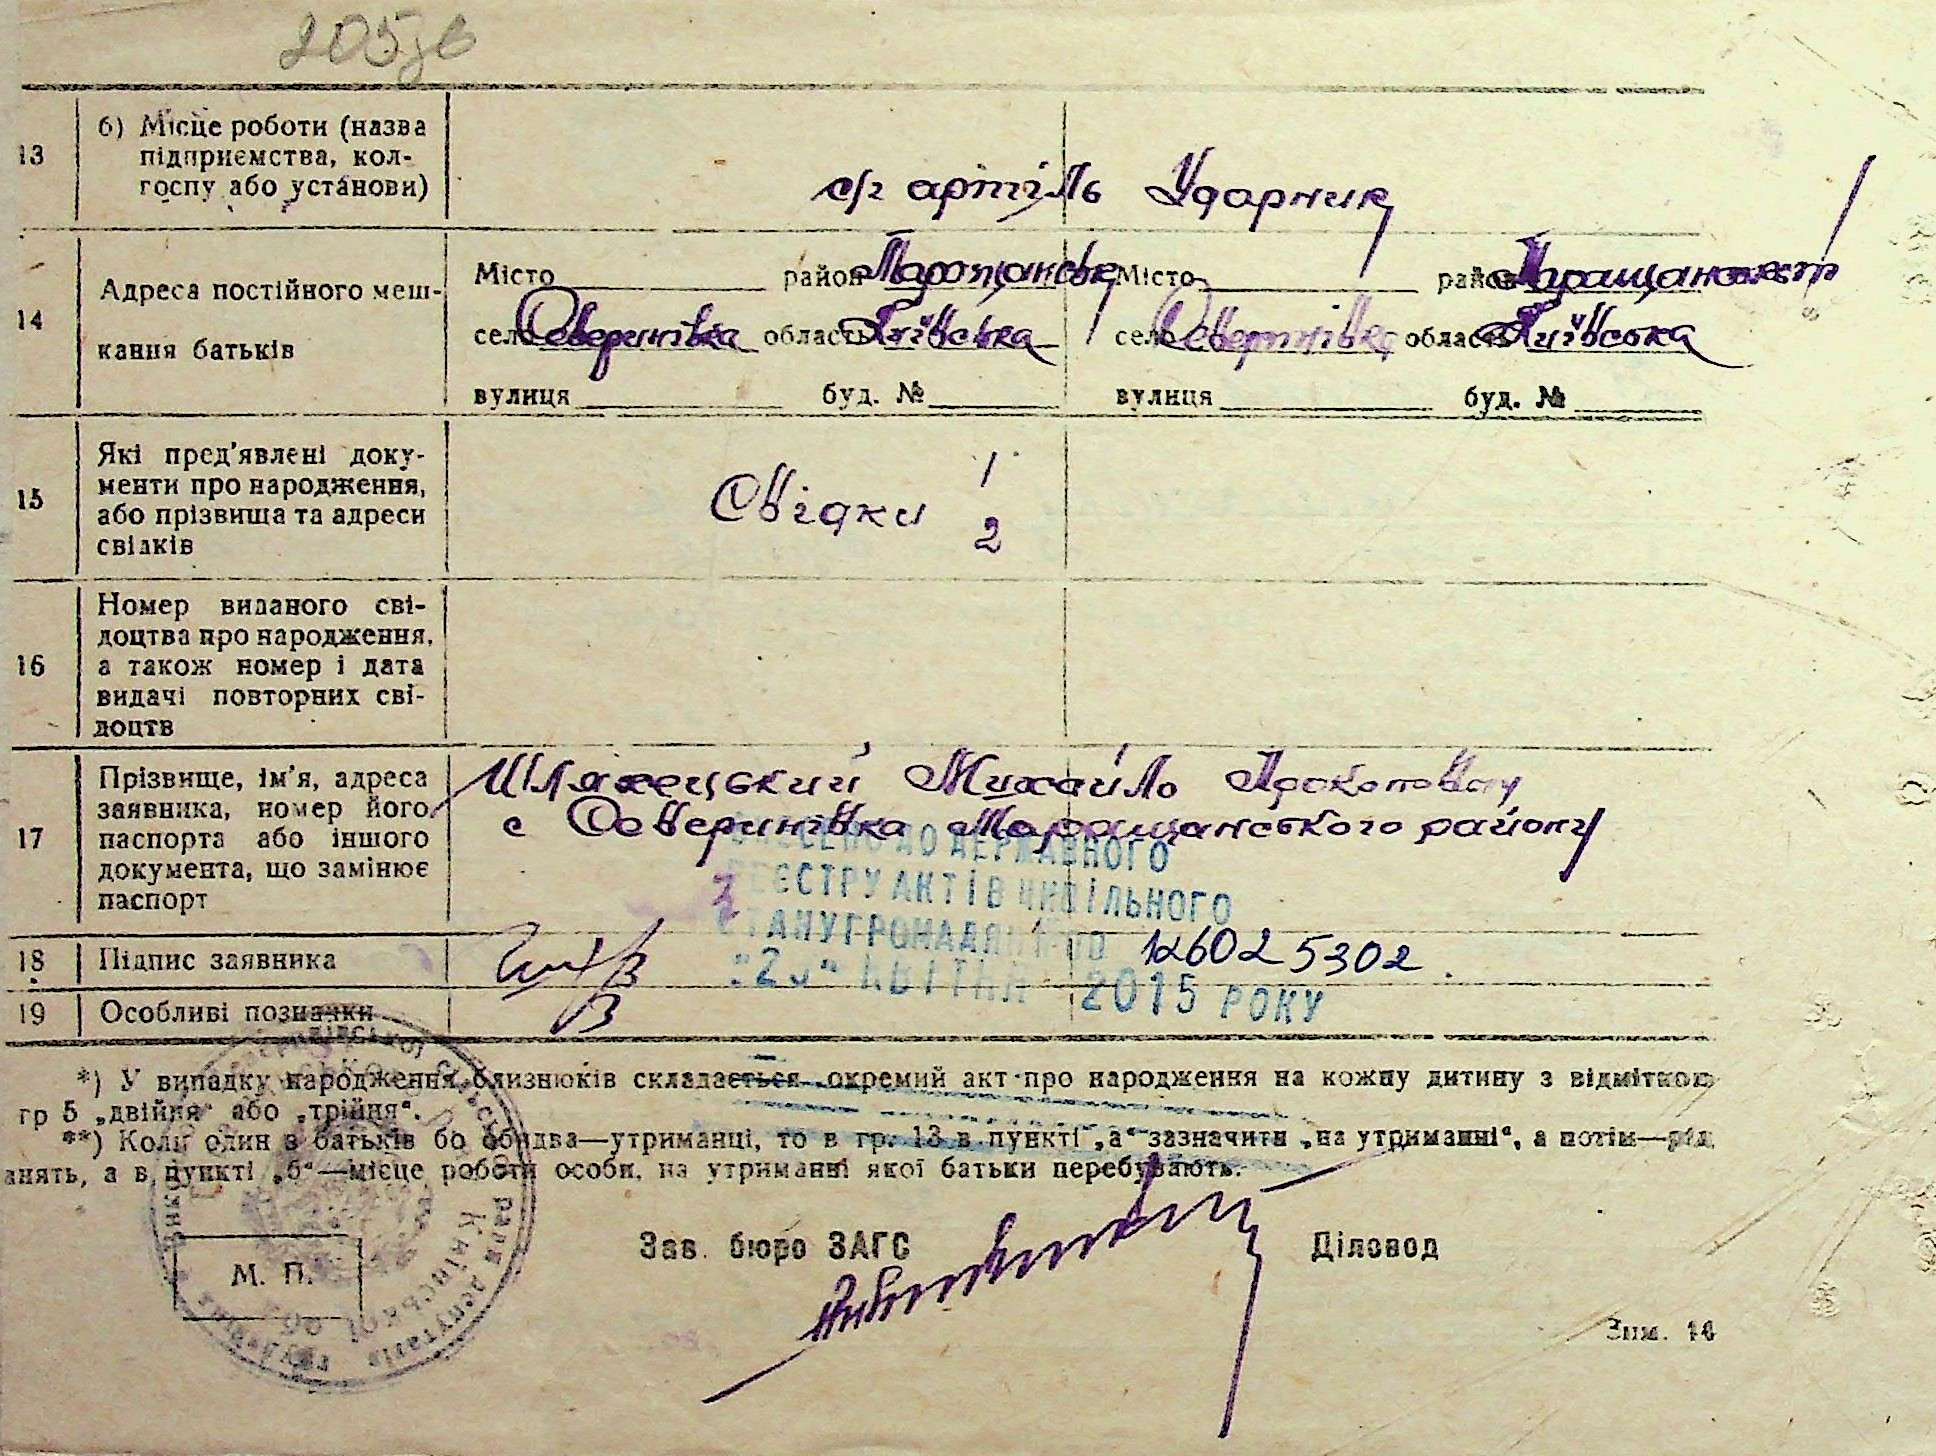 205зв
13
б) Місце роботи (назва
підприємства, кол-
госпу або установи)
с/г артіль Ударник
14
Адреса постійного меш-
кання батьків
Місто район
село Северинівка область Київська
вулиця буд. №
Місто район
село Северинівка область Київська
вулиця буд. №
15
Які пред'явлені доку-
менти про народження,
або прізвища та адреси
свідків
Свідки 1
2
16
Номер виданого сві-
доцтва про народження,
а також номер і дата
видачі повторних сві-
доцтв
17
Прізвище, ім'я, адреса
заявника, номер його
паспорта або іншого
документа, що замінює
паспорт
Шляхецький Михайло Прокопович
с Северинівка району
ВНЕСЕНО ДО ДЕРЖАВНОГО
РЕЄСТРУ АКТІВ ЦИВІЛЬНОГО
СТАНУ ГРОМАДЯН
12602 5302
КВІТНЯ 2015 РОКУ
18
Підпис заявника
19
Особливі позначки
*) У випадку народження близнюків складається окремий акт про народження на кожну дитину з відміткою
гр 5 „двійня“ або „трійня“.
**) Коли один з батьків бо обидва—утриманці, то в гр. 13 в пункті „а“ зазначити „на утриманні“, а потім—рід
анять, а в пункті „б“—місце роботи особи, на утриманні якої батьки перебувають.
Зав. бюро ЗАГС
Діловод
М. П.
Зам. 16